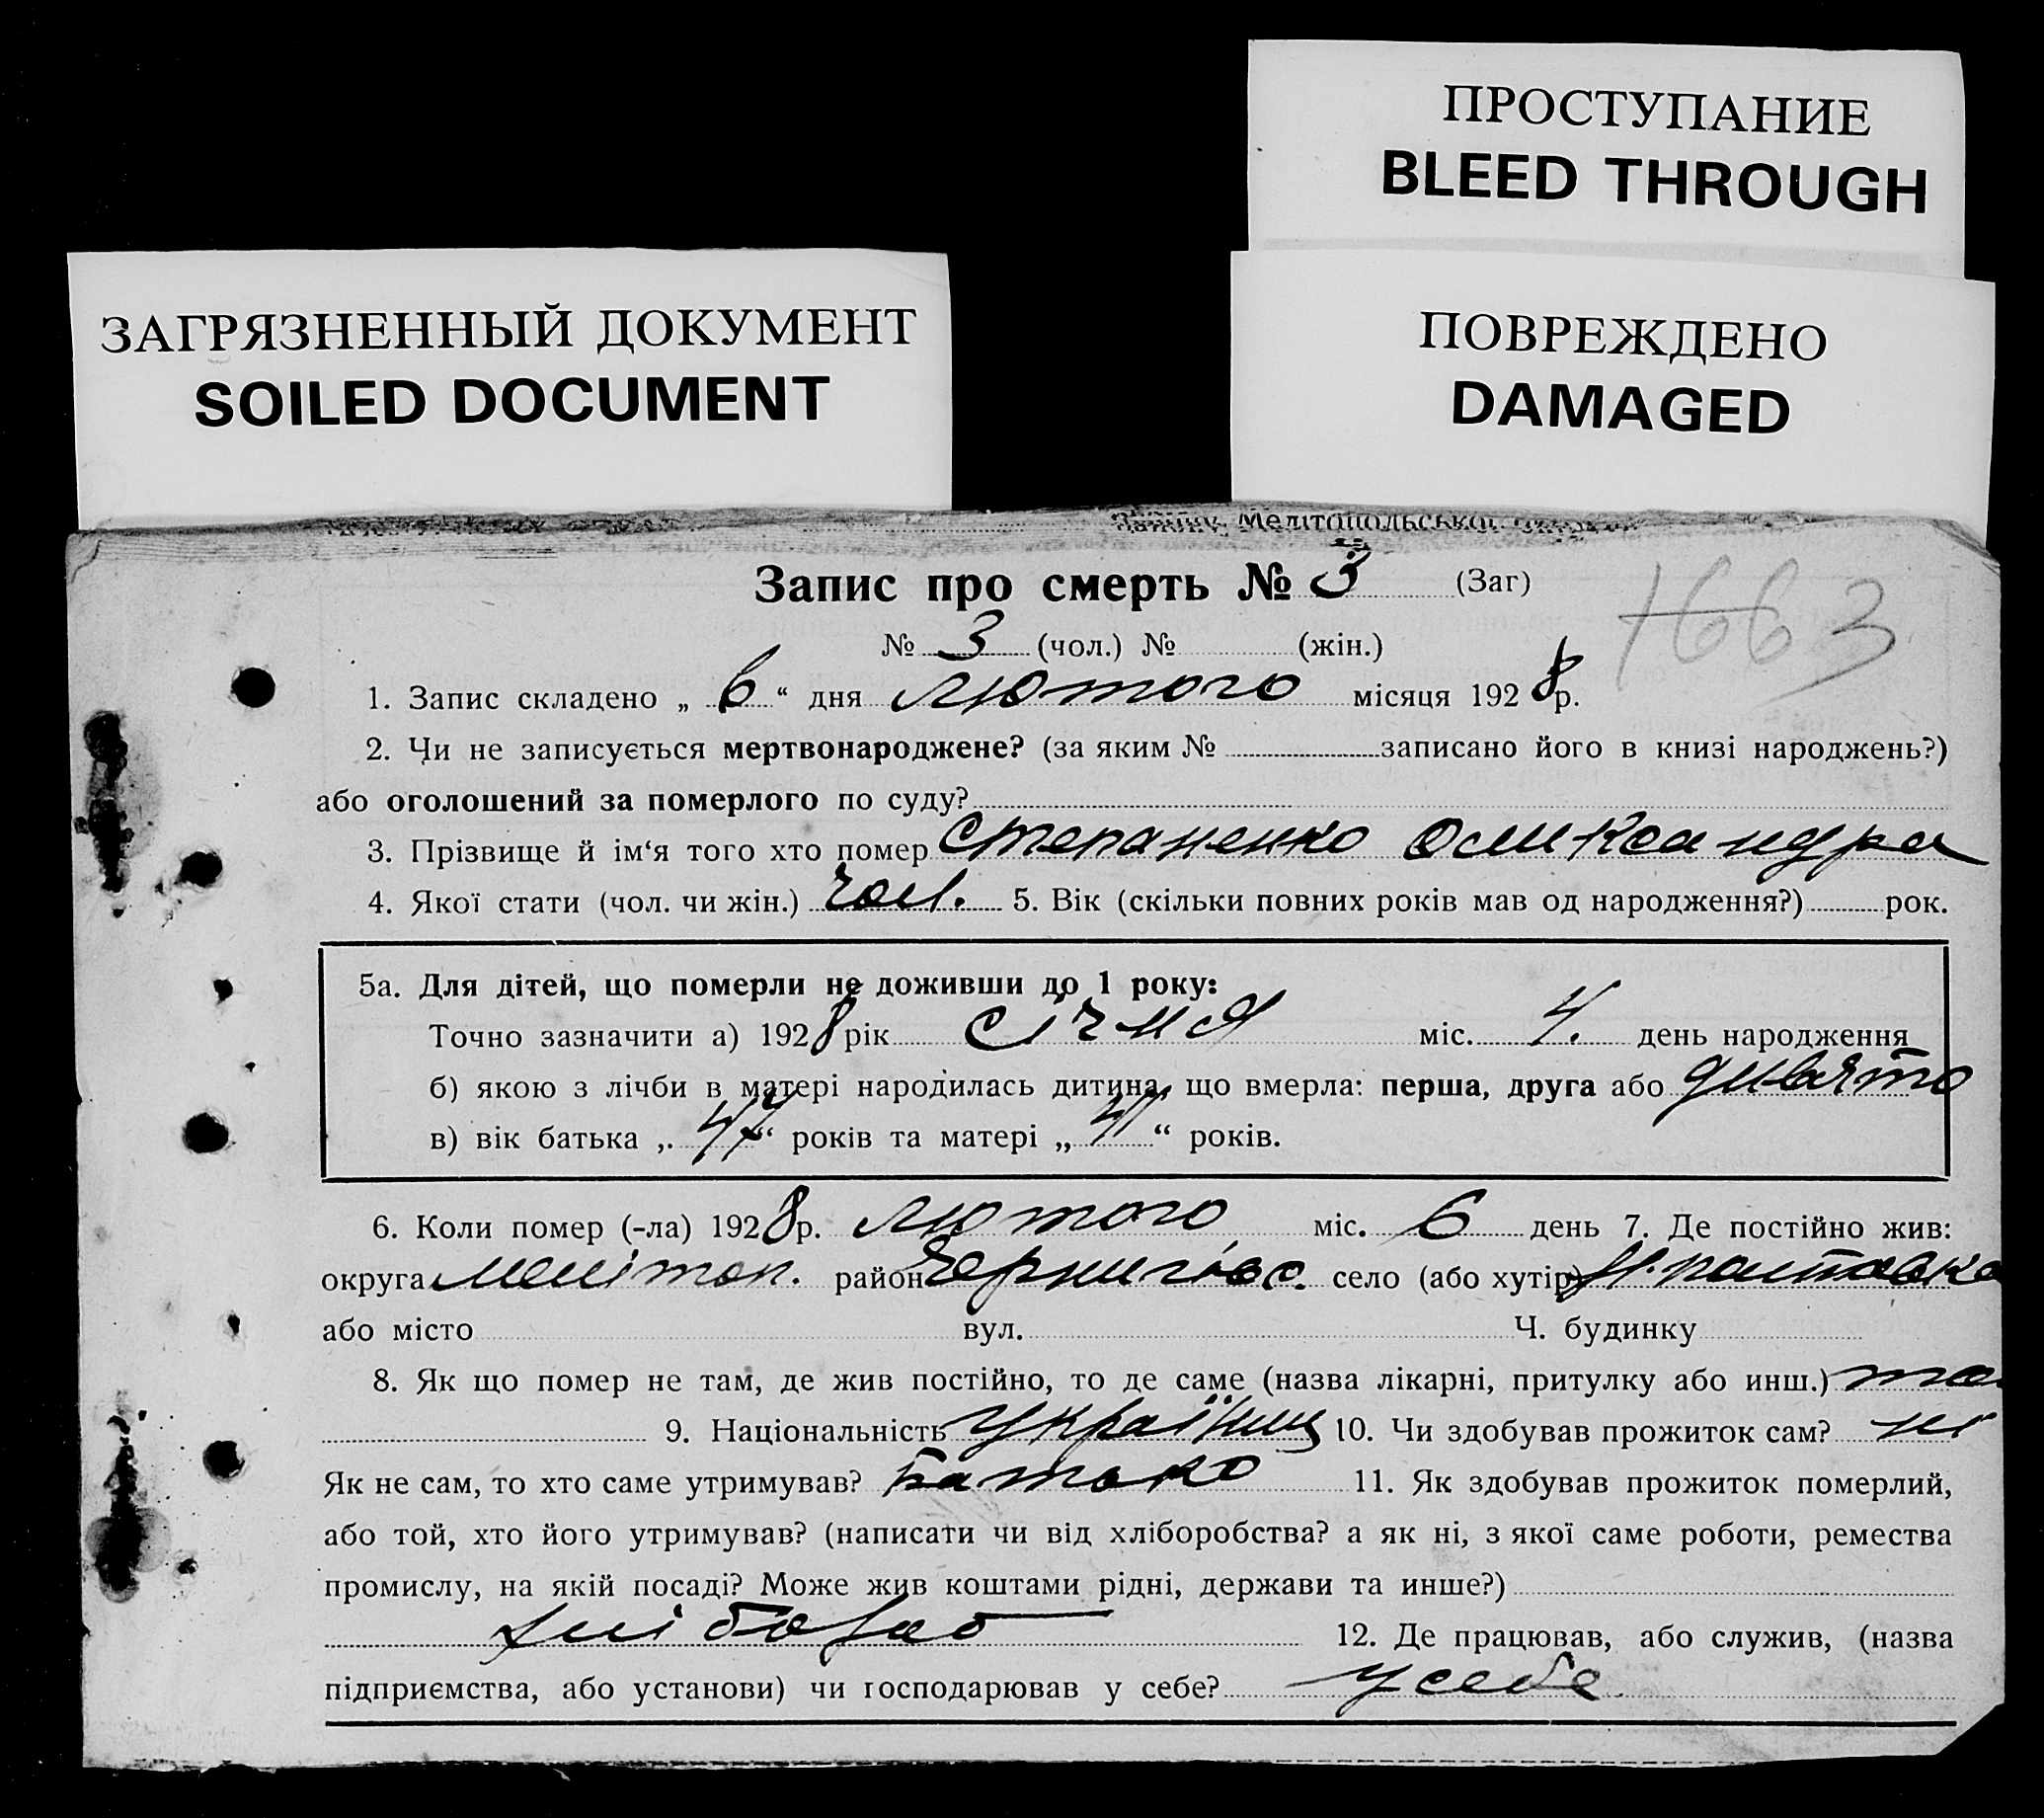 ПРОСТУПАНИЕ
BLEED THROUGH
ЗАГРЯЗНЕННЫЙ ДОКУМЕНТ
SOILED DOCUMENT
ПОВРЕЖДЕНО
DAMAGED
Мелітопольської
Запис про смерть № 3 (Заг)
1663
№ 3 (чол.) № (жін.)
1. Запис складено „ 6 “ дня лютого місяця 1928 р.
2. Чи не записується мертвонароджене? (за яким № записано його в книзі народжень?)
або оголошений за померлого по суду?
3. Прізвище й ім‘я того хто помер Степаненко Олександра
4. Якої стати (чол. чи жін.) чол. 5. Вік (скільки повних років мав од народження?) рок.
5а. Для дітей, що померли не доживши до 1 року:
Точно зазначити а) 1928 рік січня міс. 4. день народження
б) якою з лічби в матері народилась дитина, що вмерла: перша, друга або дивято
в) вік батька „ 44 “ років та матері „ 41 “ років.
6. Коли помер (-ла) 1928 р. лютого міс. 6 день 7. Де постійно жив:
округа Меліточ. район Чернигівс. село (або хутір) Н. полтавка
або місто вул. Ч. будинку
8. Як що помер не там, де жив постійно, то де саме (назва лікарні, притулку або инш.)
9. Національність Українец 10. Чи здобував прожиток сам? ні
Як не сам, то хто саме утримував? батько 11. Як здобував прожиток померлий,
або той, хто його утримував? (написати чи від хліборобства? а як ні, з якої саме роботи, ремества
промислу, на якій посаді? Може жив коштами рідні, держави та инше?)
хлібороб 12. Де працював, або служив, (назва
підприємства, або установи) чи господарював у себе? у себе